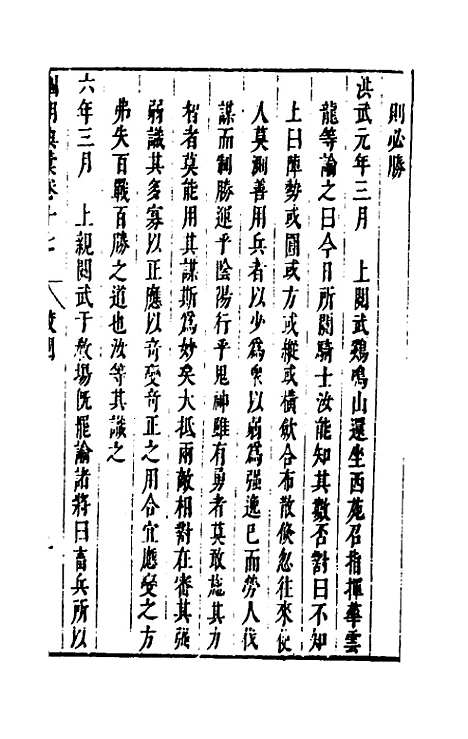 則必勝
洪武元年三月　上閱武鷄鳴山還坐西苑召指揮華雲
龍等諭之曰今日所閱騎士汝能知其數否對曰不知
上曰陣勢或圓或方或縱或橫歛合布散倐忽徃來使
人莫測善用兵者以少爲衆以弱爲强逸巳而勞人伐
謀而制勝運乎陰陽行乎鬼神雖有勇者莫敢施其力
智者莫能用其謀斯爲妙矣大抵兩敵相對在審其强
弱識其多寡以正應以竒變竒正之用合宜應變之方
弗失百戰百勝之道也汝等其識之
六年三月　上親閱武于教場旣罷諭諸將曰畜兵所以
國朝典彙卷十七